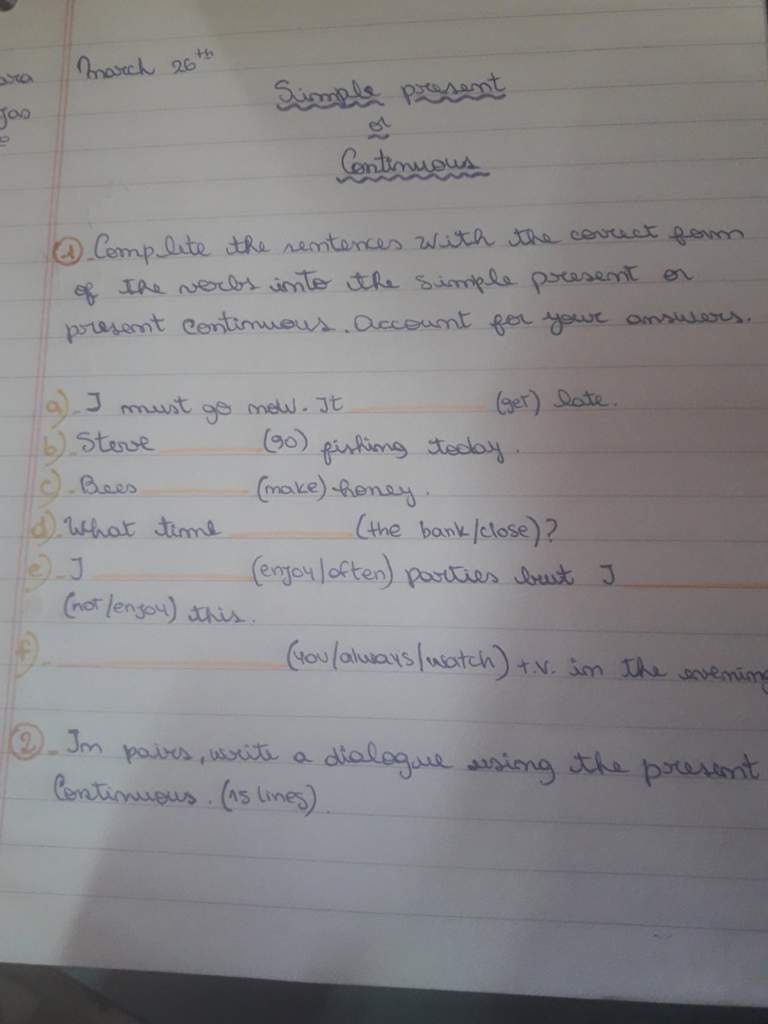 March 26th
Simple present
or
Continuous
1. Complete the sentences with the correct form
of the verbs into the simple present or
present continuous. Account for your answers.
a). I must go now. It ______ (get) late.
b). Steve ______ (go) fishing today.
c). Bees ______ (make) honey.
d). What time ______ (the bank/close)?
e). I ______ (enjoy/often) parties but I ______
(not/enjoy) this.
f). ______ (you/always/watch) t.v. in the evening
2. In pairs, write a dialogue using the present
Continuous. (15 lines).